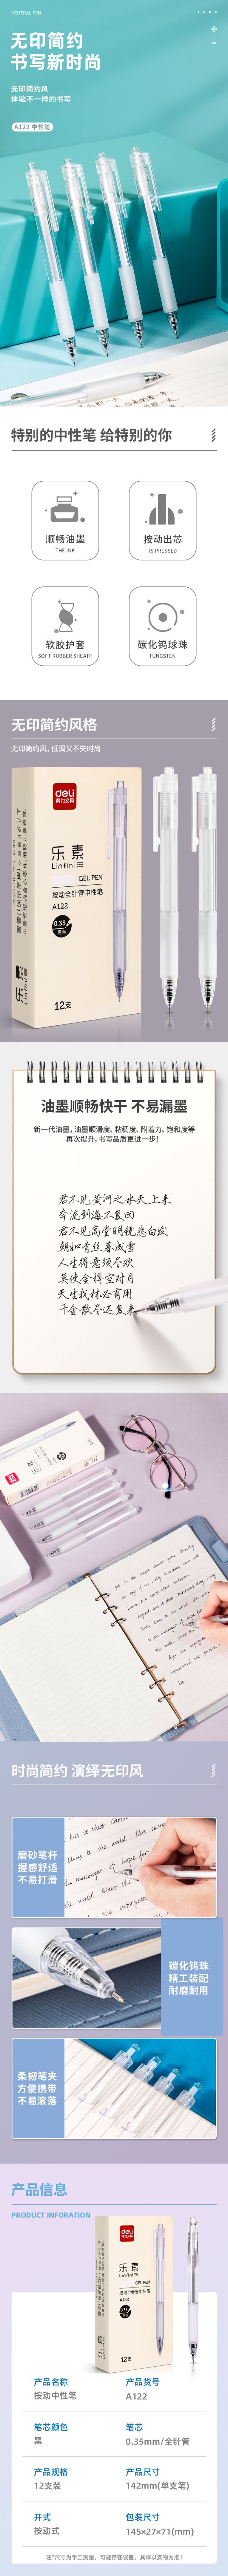 NEUTRAL PEN
无印简约
书写新时尚
无印简约风
体验不一样的书写
A122 中性笔
特别的中性笔 给特别的你
顺畅油墨
THE INK
按动出芯
IS PRESSED
软胶护套
SOFT RUBBER SHEATH
碳化钨球珠
TUNGSTEN
无印简约风格
无印简约风,低调又不失时尚
deli
得力文具
乐素
GEL PEN
按动全针管中性笔
A122
0.35
12支
油墨顺畅快干 不易漏墨
新一代油墨,油墨顺滑度、粘稠度、附着力、饱和度等
再次提升,书写品质更进一步!
君不见黄河之水天上来
奔流到海不复回
君不见高堂明镜悲白发
朝如青丝暮成雪
人生得意须尽欢
莫使金樽空对月
天生我材必有用
千金散尽还复来
时尚简约 演绎无印风
磨砂笔杆
握感舒适
不易打滑
碳化钨珠
精工装配
耐磨耐用
柔韧笔夹
方便携带
不易滚落
产品信息
PRODUCT INFORATION
deli
乐素
GEL PEN
按动全针管中性笔
A122
12支
产品名称
按动中性笔
产品货号
A122
笔芯颜色
黑
笔芯
0.35mm/全针管
产品规格
12支装
产品尺寸
142mm(单支笔)
开式
按动式
包装尺寸
145×27×71(mm)
注*尺寸为手工测量,可能存在误差,具体以实物为准!